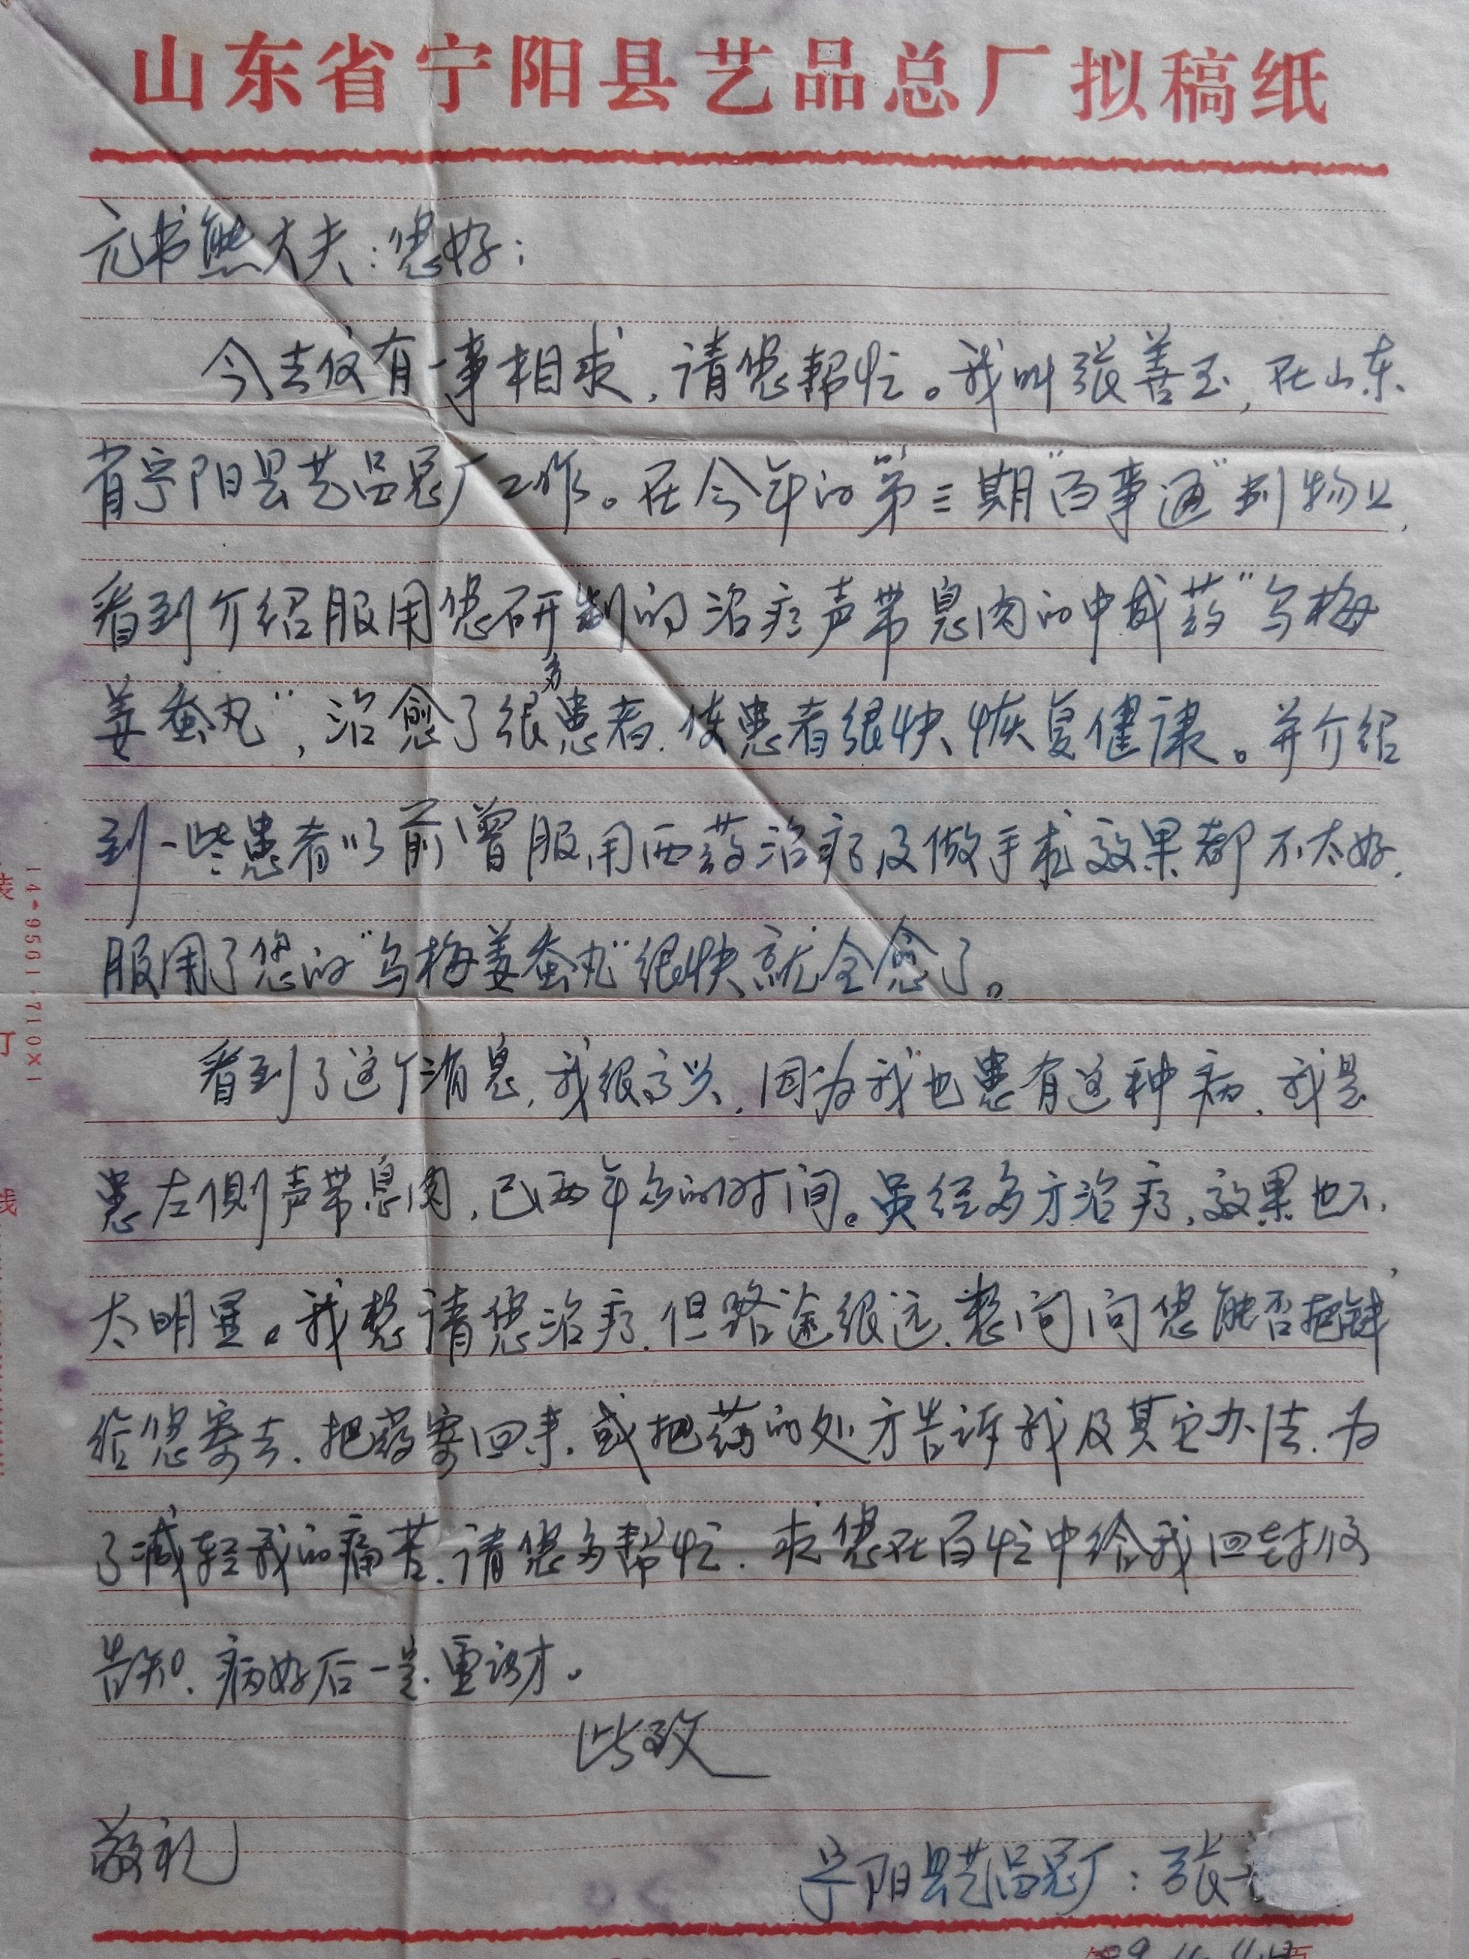 山东省宁阳县艺品总厂拟稿纸
元书熊大夫：您好：
今去仅有一事相求，请您帮忙。我叫张善玉，在山东
省宁阳县艺品总厂工作。在今年的第三期"百事通"刊物上，
看到介绍服用您研制的治疗声带息肉的中成药"乌梅
姜蚕丸"，治愈了很多患者，使患者很快恢复健康。并介绍
到一些患者以前曾服用西药治疗及做手术效果都不太好，
服用了您的"乌梅姜蚕丸"很快就全愈了。
看到了这个消息，我很高兴，因为我也患有这种病，我是
患左侧声带息肉，已两年多的时间。虽经多方治疗，效果也不
太明显。我想请您治疗，但路途很远，想问问您能否把钱
给您寄去，把药寄回来，或把药的处方告诉我及其它办法，为
了减轻我的痛苦，请您多帮忙，求您在百忙中给我回封信
告知，病好后一定重谢。
此致
敬礼
宁阳县艺品总厂：张
装
订
线
14-9561·710×1